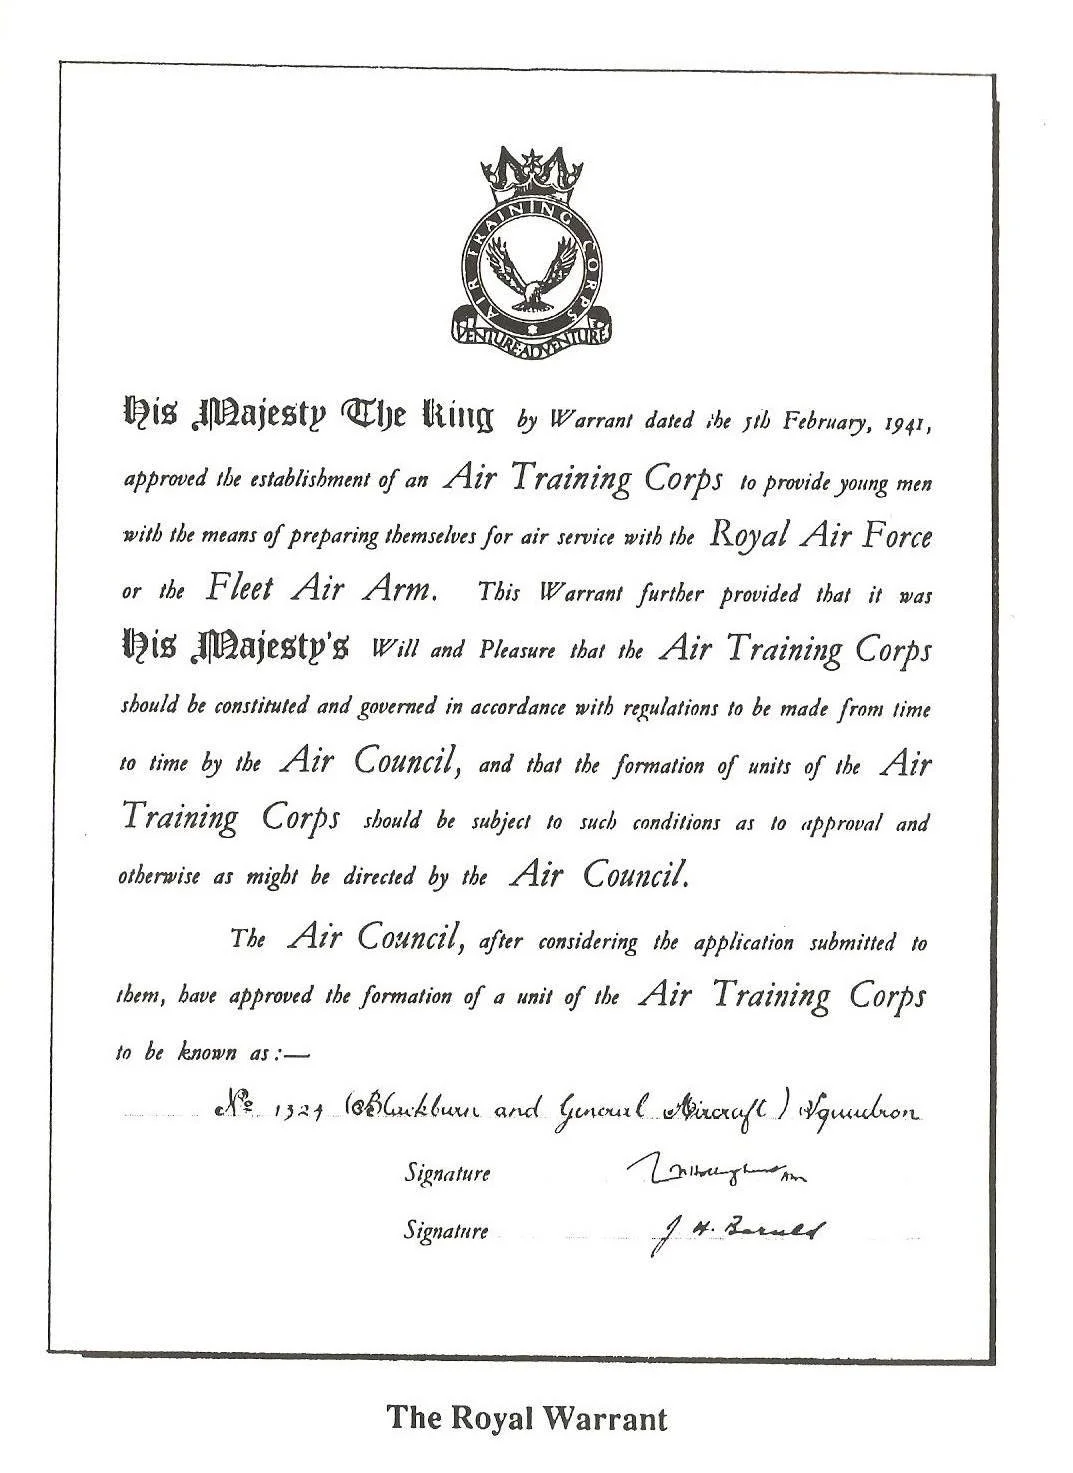 AIR TRAINING CORPS
VENTURE ADVENTURE
His Majesty The King by Warrant dated the 5th February, 1941,
approved the establishment of an Air Training Corps to provide young men
with the means of preparing themselves for air service with the Royal Air Force
or the Fleet Air Arm. This Warrant further provided that it was
His Majesty's Will and Pleasure that the Air Training Corps
should be constituted and governed in accordance with regulations to be made from time
to time by the Air Council, and that the formation of units of the Air
Training Corps should be subject to such conditions as to approval and
otherwise as might be directed by the Air Council.
The Air Council, after considering the application submitted to
them, have approved the formation of a unit of the Air Training Corps
to be known as:—
No. 1324 (Blackburn and General Aircraft) Squadron
Signature
Signature J H.
The Royal Warrant